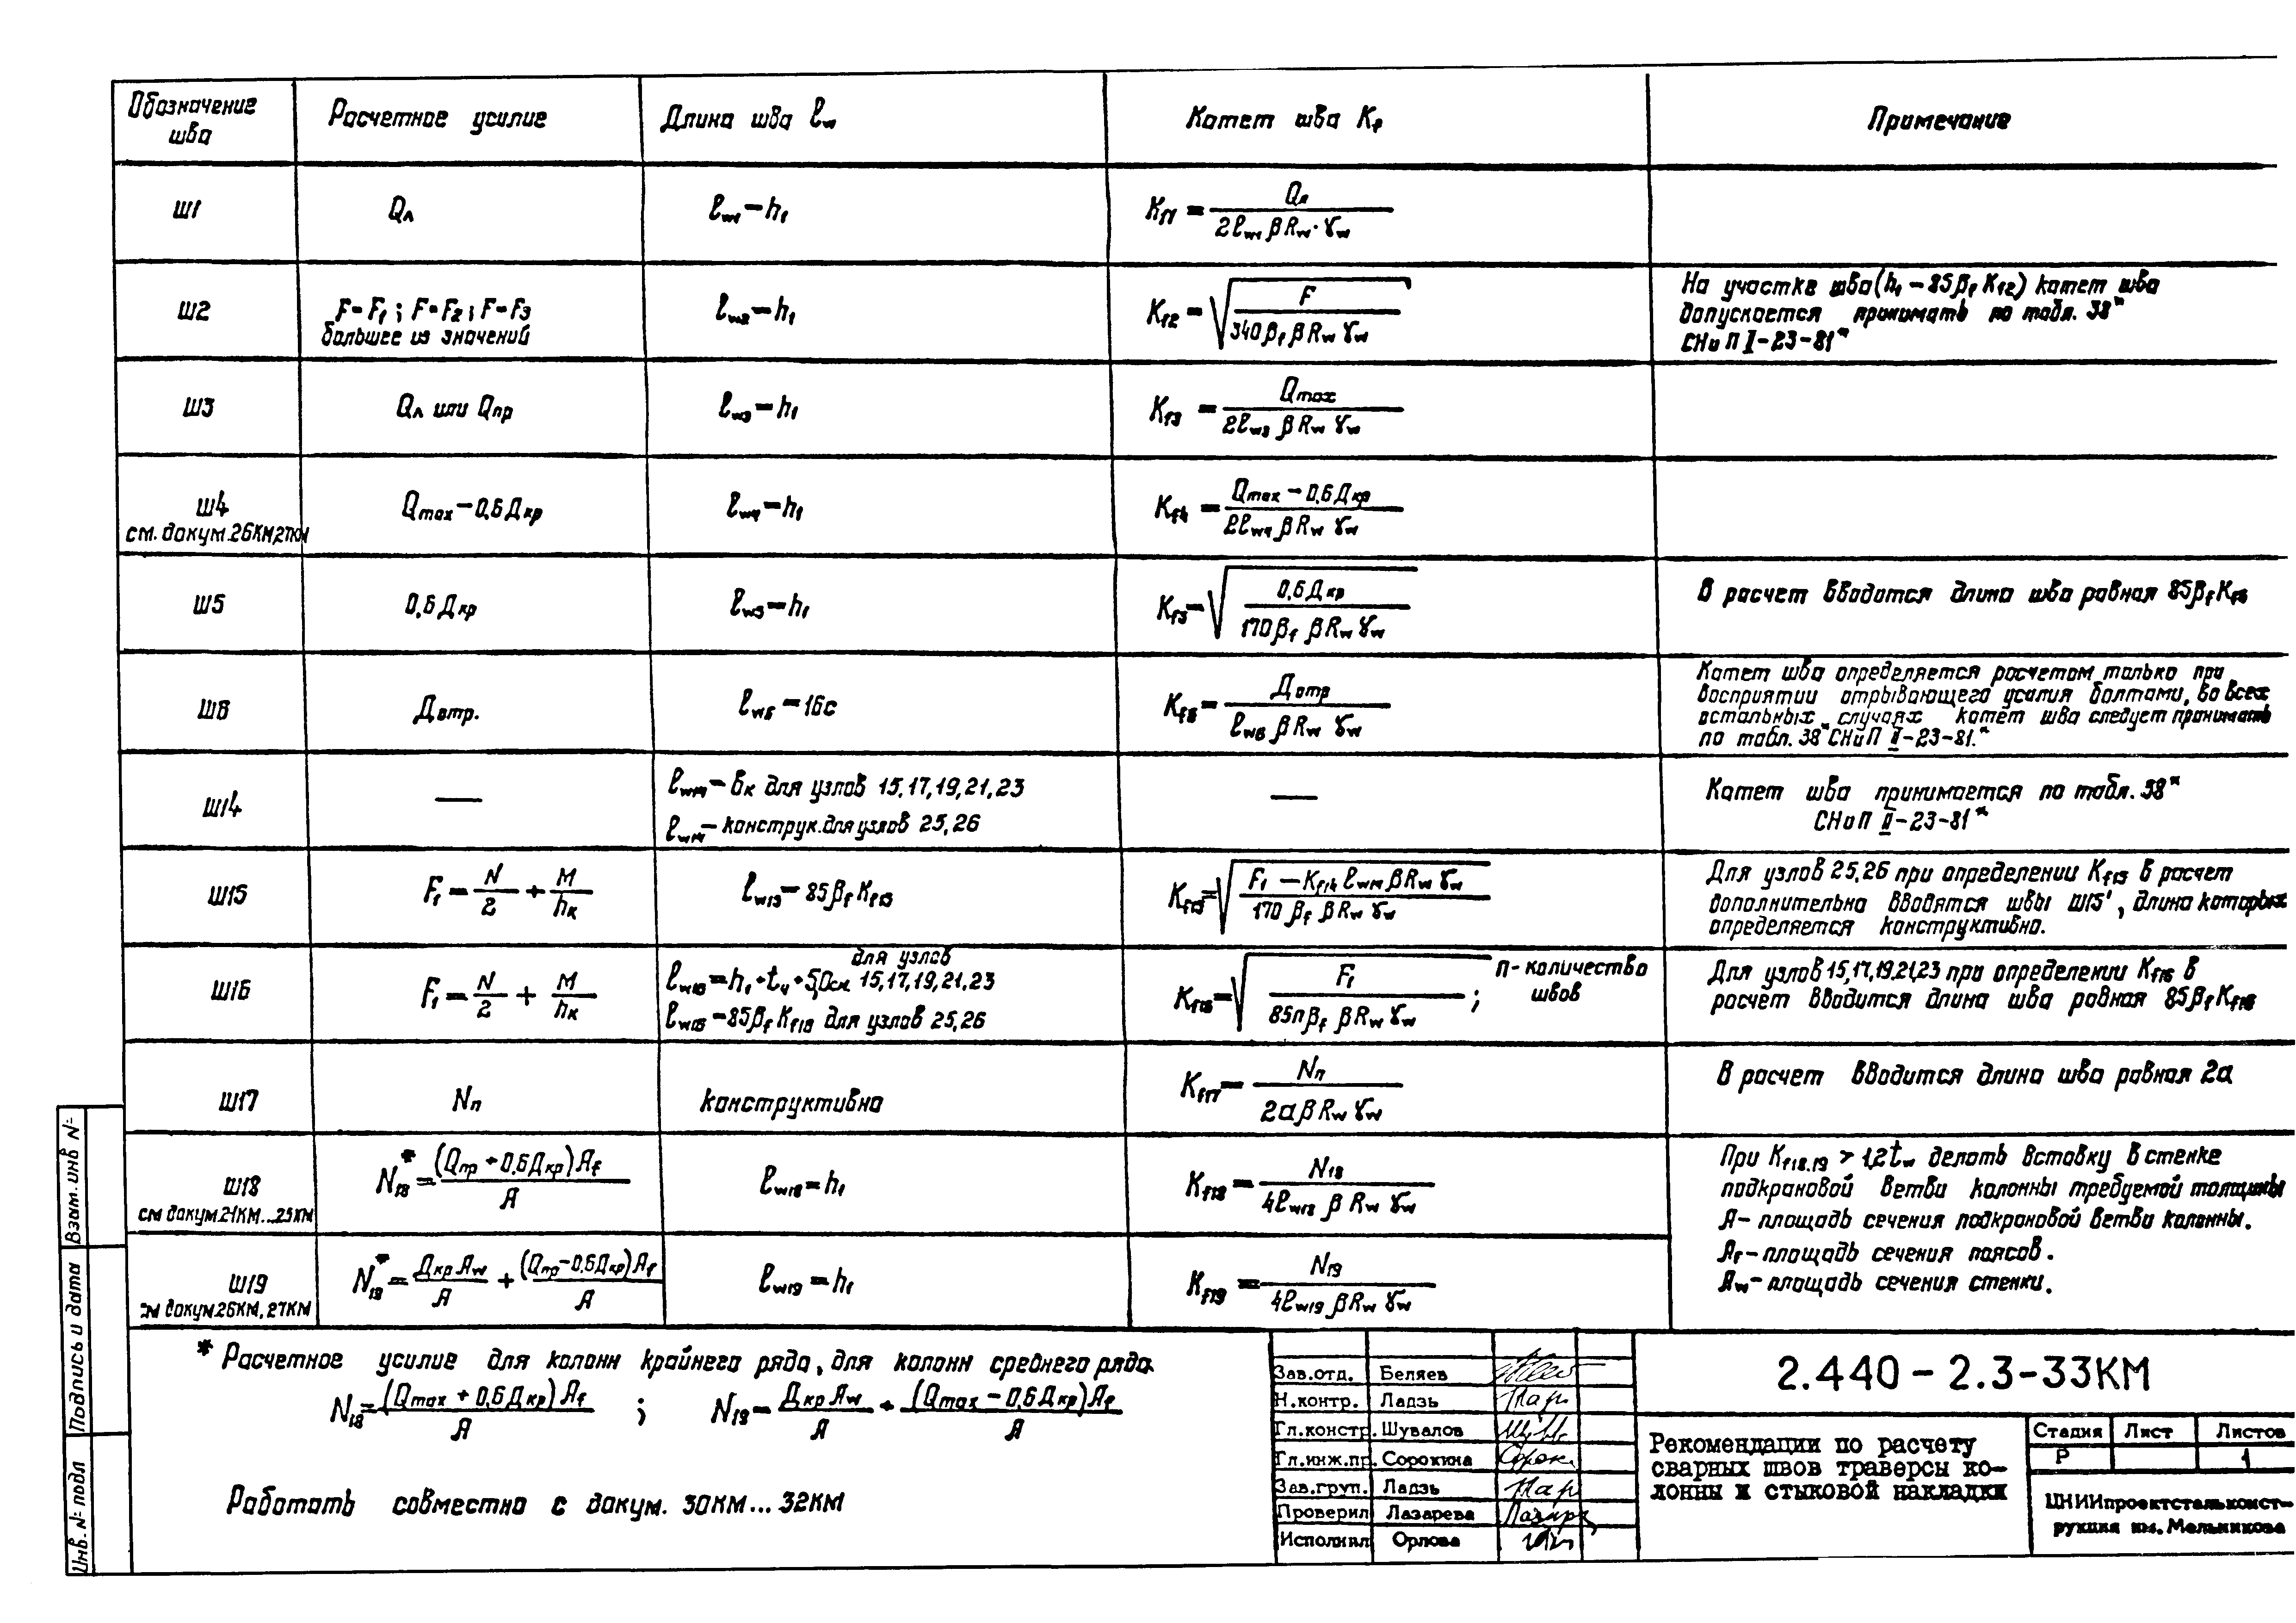 Обозначение шва
Расчетное усилие
Длина шва ℓw
Катет шва Kf
Примечание
Ш1
Qл
ℓw1 = h1
Kf1 = Qл / 2ℓw1 β Rw · γw
Ш2
F = F1 ; F = F2 ; F = F3
большее из значений
ℓw2 = h1
Kf2 = √ F / 340 βf β Rw γw
На участке шва (h1 - 85 βf Kf2) катет шва
допускается принимать по табл. 38*
СНиП II-23-81*
Ш3
Qл или Qпр
ℓw3 = h1
Kf3 = Qmax / 2ℓw3 β Rw γw
Ш4
см. докум. 26КМ, 27КМ
Qmax - 0,6 Дкр
ℓw4 = h1
Kf4 = Qmax - 0,6 Дкр / 2ℓw4 β Rw γw
Ш5
0,6 Дкр
ℓw5 = h1
Kf5 = √ 0,6 Дкр / 170 βf β Rw γw
В расчет вводятся длина шва равная 85 βf Kf5
Ш6
Дотр.
ℓw6 = 16c
Kf6 = Дотр / ℓw6 β Rw γw
Катет шва определяется расчетом только при
восприятии отрывающего усилия болтами, во всех
остальных случаях катет шва следует принимать
по табл. 38* СНиП II-23-81.*
Ш14
—
ℓw14 = вк для узлов 15, 17, 19, 21, 23
ℓw14 - конструк. для узлов 25, 26
—
Катет шва принимается по табл. 38*
СНиП II-23-81*
Ш15
F1 = N/2 + M/hк
ℓw15 = 85 βf Kf15
Kf15 = √ F1 - Kf14 ℓw14 β Rw γw / 170 βf β Rw γw
Для узлов 25, 26 при определении Kf15 в расчет
дополнительно вводятся швы Ш15', длина которых
определяется конструктивно.
Ш16
F1 = N/2 + M/hк
для узлов
ℓw16 = h1 + tч + 5,0см 15, 17, 19, 21, 23
ℓw16 = 85 βf Kf16 для узлов 25, 26
Kf16 = √ F1 / 85n βf β Rw γw ; n - количество швов
Для узлов 15, 17, 19, 21, 23 при определении Kf16 в
расчет вводится длина шва равная 85 βf Kf16
Ш17
Nп
конструктивно
Kf17 = Nп / 2a β Rw γw
В расчет вводится длина шва равная 2a
Ш18
см докум. 21КМ...25КМ
N18* = (Qпр + 0,6 Дкр) Af / A
ℓw18 = h1
Kf18 = N18 / 4ℓw18 β Rw γw
При Kf18,19 > 1,2 tw делать вставку в стенке
подкрановой ветви колонны требуемой толщины
A - площадь сечения подкрановой ветви колонны.
Af - площадь сечения поясов.
Aw - площадь сечения стенки.
Ш19
см докум. 26КМ, 27КМ
N19* = Дкр Aw / A + (Qпр - 0,6 Дкр) Af / A
ℓw19 = h1
Kf19 = N19 / 4ℓw19 β Rw γw
* Расчетное усилие для колонн крайнего ряда, для колонн среднего ряда
N18 = (Qmax + 0,6 Дкр) Af / A ; N19 = Дкр Aw / A + (Qmax - 0,6 Дкр) Af / A
Работать совместно с докум. 30КМ... 32КМ
Взам. инв №
Подпись и дата
Инв. № подл
Зав.отд. Беляев
Н.контр. Ладзь
Гл.констр. Шувалов
Гл.инж.пр. Сорокина
Зав.груп. Ладзь
Проверил Лазарева
Исполнил Орлова
2.440 - 2.3-33КМ
Рекомендации по расчету
сварных швов траверсы ко-
лонны и стыковой накладки
Стадия Лист Листов
Р 1
ЦНИИпроектстальконст-
рукция им. Мельникова